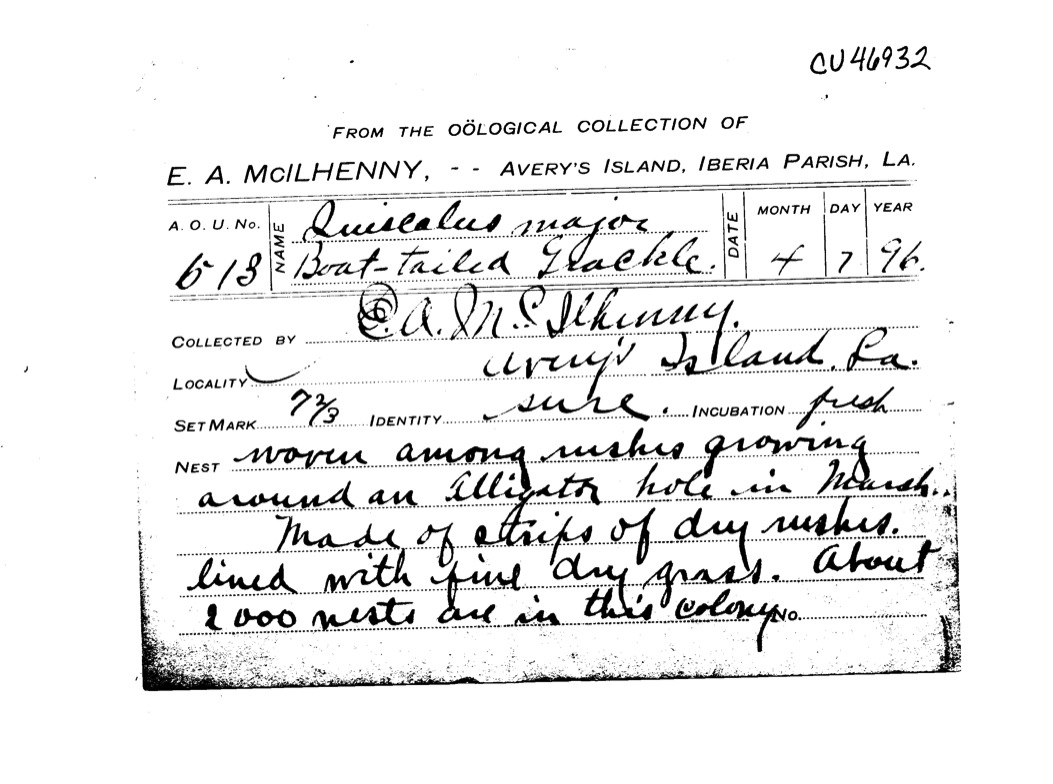 CU46932
FROM THE OÖLOGICAL COLLECTION OF
E. A. MCILHENNY, - - AVERY'S ISLAND, IBERIA PARISH, LA.
A. O. U. No. 513 NAME Quiscalus major DATE MONTH 4 DAY 7 YEAR 96.
Boat-tailed Grackle.
COLLECTED BY E. A. McIlhenny.
LOCALITY Avery's Island, La.
SET MARK 72/3 IDENTITY sure. INCUBATION fresh
NEST woven among rushes growing
around an Alligator hole in Marsh.
Made of strips of dry rushes.
lined with fine dry grass. About
2000 nests are in this colony No.